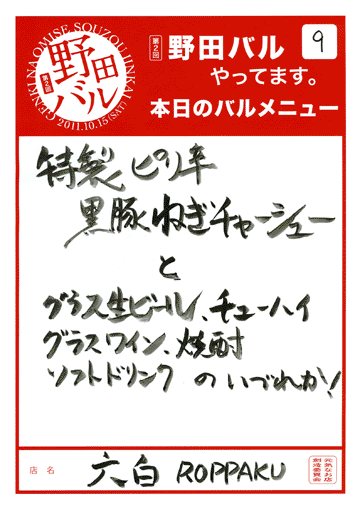 GENKI NA OMISE SOUZOU IINKAI
第2回
野田
バル
2011.10.15(SAT)
第2回 野田バル
やってます。
9
本日のバルメニュー
特製ピリ辛
黒豚ねぎチャーシュー
と
グラス生ビール、チューハイ
グラスワイン、焼酎
ソフトドリンク のいづれか!
店名
六白 ROPPAKU
元気なお店
創造委員会